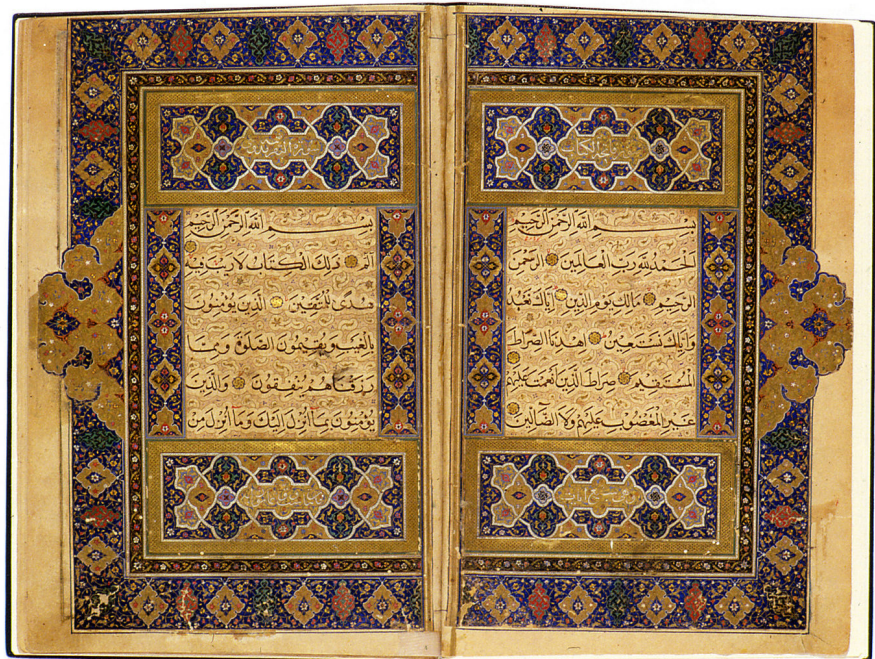 سورة فاتحة الكتاب
بسم الله الرحمن الرحيم
الحمد لله رب العالمين الرحمن
الرحيم مالك يوم الدين إياك نعبد
وإياك نستعين اهدنا الصراط
المستقيم صراط الذين أنعمت عليهم
غير المغضوب عليهم ولا الضالين
وهي سبع آيات
بسم الله الرحمن الرحيم
الم ذلك الكتاب لا ريب فيه
هدى للمتقين الذين يؤمنون
بالغيب ويقيمون الصلوة ومما
رزقناهم ينفقون والذين
يؤمنون بما أنزل إليك وما أنزل من